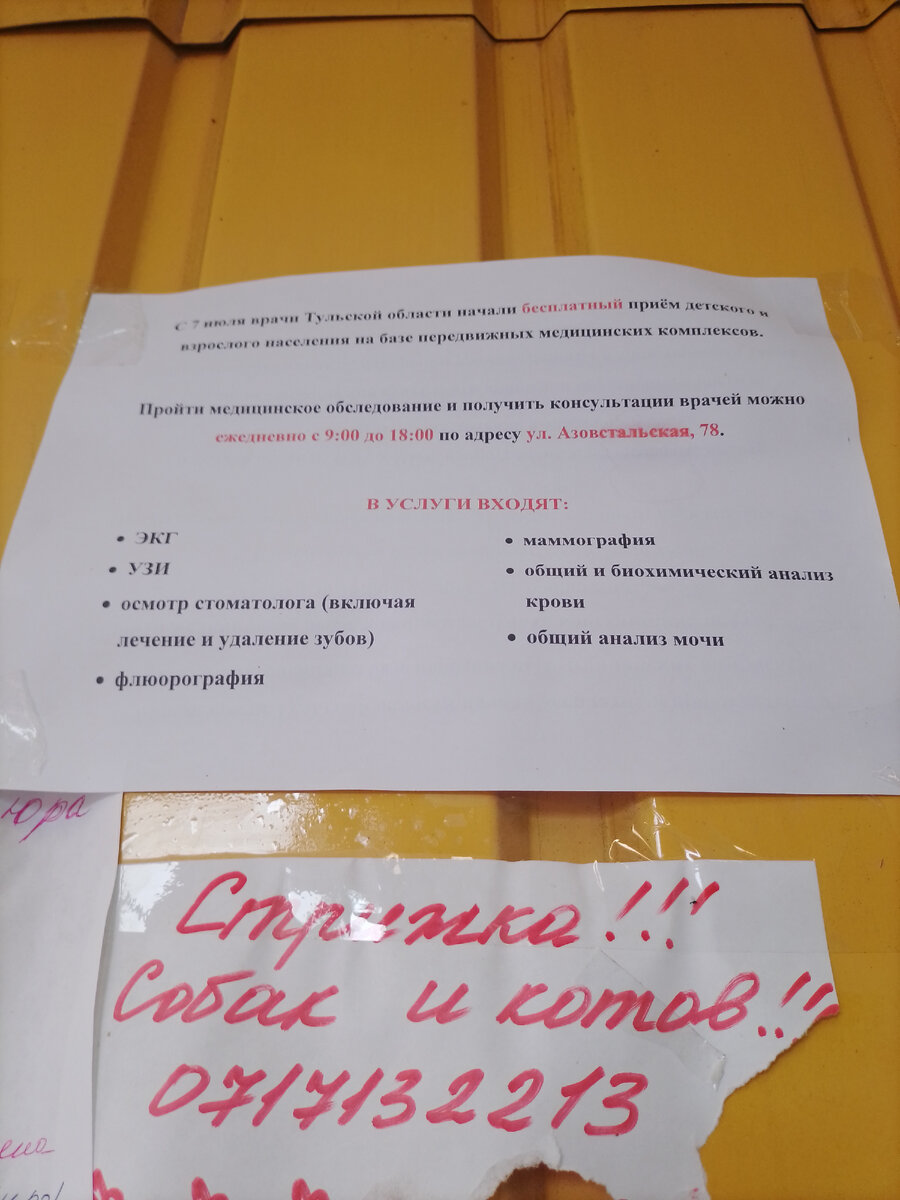 С 7 июля врачи Тульской области начали бесплатный приём детского и
взрослого населения на базе передвижных медицинских комплексов.
Пройти медицинское обследование и получить консультации врачей можно
ежедневно с 9:00 до 18:00 по адресу ул. Азовстальская, 78.
В УСЛУГИ ВХОДЯТ:
• ЭКГ
• УЗИ
• осмотр стоматолога (включая
лечение и удаление зубов)
• флюорография
• маммография
• общий и биохимический анализ
крови
• общий анализ мочи
Стрижка!!!
Собак и котов!!!
0717132213